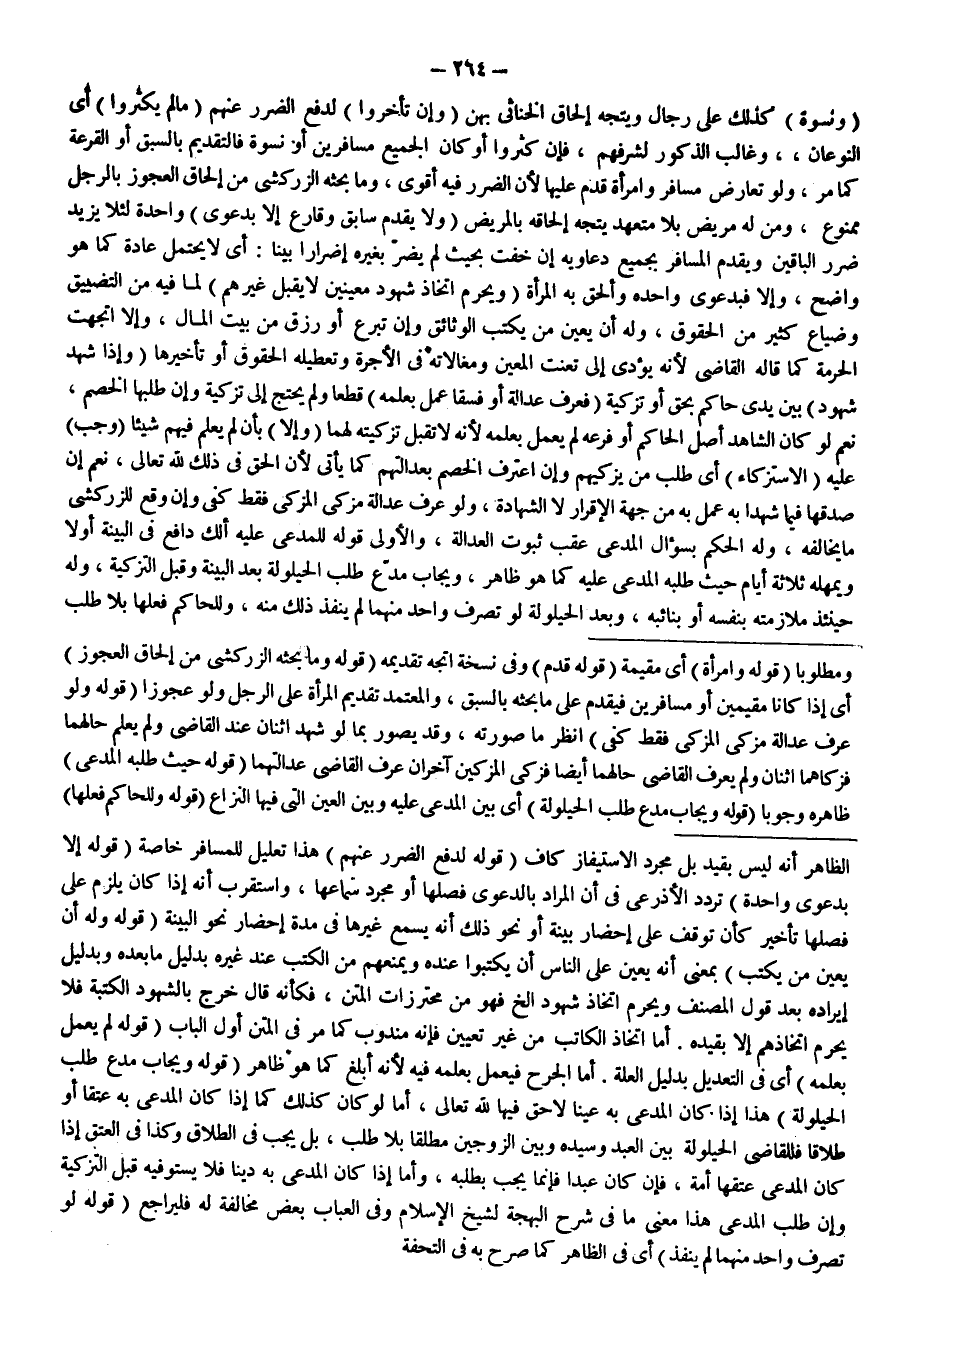 - ٢٦٤ -
( ونسوة ) كذلك على رجال ويتجه إلحاق الخناثى بهن ( وإن تأخروا ) لدفع الضرر عنهم ( مالم يكثروا ) أى
النوعان ، ، وغالب الذكور لشرفهم ، فإن كثروا أو كان الجميع مسافرين أو نسوة فالتقديم بالسبق أو القرعة
كما مر ، ولو تعارض مسافر وامرأة قدم عليها لأن الضرر فيه أقوى ، وما بحثه الزركشى من إلحاق العجوز بالرجل
ممنوع ، ومن له مريض بلا متعهد يتجه إلحاقه بالمريض ( ولا يقدم سابق وقارع إلا بدعوى ) واحدة لئلا يزيد
ضرر الباقين ويقدم المسافر بجميع دعاويه إن خفت بحيث لم يضرّ بغيره إضرارا بينا : أى لايحتمل عادة كما هو
واضح ، وإلا فبدعوى واحده وألحق به المرأة ( ويحرم اتخاذ شهود معينين لايقبل غيرهم ) لما فيه من التضييق
وضياع كثير من الحقوق ، وله أن يعين من يكتب الوثائق وإن تبرع أو رزق من بيت المال ، وإلا اتجهت
الحرمة كما قاله القاضى لأنه يؤدى إلى تعنت المعين ومغالاته فى الأجرة وتعطيله الحقوق أو تأخيرها ( وإذا شهد
شهود ) بين يدى حاكم بحق أو تزكية ( فعرف عدالة أو فسقا عمل بعلمه ) قطعا ولم يحتج إلى تزكية وإن طلبها الخصم ،
نعم لو كان الشاهد أصل الحاكم أو فرعه لم يعمل بعلمه لأنه لاتقبل تزكيته لهما ( وإلا ) بأن لم يعلم فيهم شيئا ( وجب)
عليه ( الاستزكاء ) أى طلب من يزكيهم وإن اعترف الخصم بعدالتهم كما يأتى لأن الحق فى ذلك لله تعالى ، نعم إن
صدقها فيما شهدا به عمل به من جهة الإقرار لا الشهادة ، ولو عرف عدالة مزكى المزكى فقط كفى وإن وقع للزركشى
مايخالفه ، وله الحكم بسؤال المدعى عقب ثبوت العدالة ، والأولى قوله للمدعى عليه ألك دافع فى البينة أولا
ويمهله ثلاثة أيام حيث طلبه المدعى عليه كما هو ظاهر ، ويجاب مدّع طلب الحيلولة بعد البينة وقبل التزكية ، وله
حينئذ ملازمته بنفسه أو بنائبه ، وبعد الحيلولة لو تصرف واحد منهما لم ينفذ ذلك منه ، وللحاكم فعلها بلا طلب
ومطلوبا ( قوله وامرأة ) أى مقيمة ( قوله قدم ) وفى نسخة اتجه تقديمه ( قوله وما بحثه الزركشى من إلحاق العجوز )
أى إذا كانا مقيمين أو مسافرين فيقدم على مابحثه بالسبق ، والمعتمد تقديم المرأة على الرجل ولو عجوزا ( قوله ولو
عرف عدالة مزكى المزكى فقط كفى ) انظر ما صورته ، وقد يصور بما لو شهد اثنان عند القاضى ولم يعلم حالهما
فزكاهما اثنان ولم يعرف القاضى حالهما أيضا فزكى المزكين آخران عرف القاضى عدالتهما ( قوله حيث طلبه المدعى )
ظاهره وجوبا ( قوله ويجاب مدع طلب الحيلولة ) أى بين المدعى عليه وبين العين التى فيها النزاع ( قوله وللحاكم فعلها)
الظاهر أنه ليس بقيد بل مجرد الاستيفاز كاف ( قوله لدفع الضرر عنهم ) هذا تعليل للمسافر خاصة ( قوله إلا
بدعوى واحدة ) تردد الأذرعى فى أن المراد بالدعوى فصلها أو مجرد سماعها ، واستقرب أنه إذا كان يلزم على
فصلها تأخير كأن توقف على إحضار بينة أو نحو ذلك أنه يسمع غيرها فى مدة إحضار نحو البينة ( قوله وله أن
يعين من يكتب ) بمعنى أنه يعين على الناس أن يكتبوا عنده ويمنعهم من الكتب عند غيره بدليل مابعده وبدليل
إيراده بعد قول المصنف ويحرم اتخاذ شهود الخ فهو من محترزات المتن ، فكأنه قال خرج بالشهود الكتبة فلا
يحرم اتخاذهم إلا بقيده . أما اتخاذ الكاتب من غير تعيين فإنه مندوب كما مر فى المتن أول الباب ( قوله لم يعمل
بعلمه ) أى فى التعديل بدليل العلة . أما الجرح فيعمل بعلمه فيه لأنه أبلغ كما هو ظاهر ( قوله ويجاب مدع طلب
الحيلولة ) هذا إذا كان المدعى به عينا لاحق فيها لله تعالى ، أما لو كان كذلك كما إذا كان المدعى به عتقا أو
طلاقا فللقاضى الحيلولة بين العبد وسيده وبين الزوجين مطلقا بلا طلب ، بل يجب فى الطلاق وكذا فى العتق إذا
كان المدعى عتقها أمة ، فإن كان عبدا فإنما يجب بطلبه ، وأما إذا كان المدعى به دينا فلا يستوفيه قبل التزكية
وإن طلب المدعى هذا معنى ما فى شرح البهجة لشيخ الإسلام وفى العباب بعض مخالفة له فليراجع ( قوله لو
تصرف واحد منهما لم ينفذ ) أى فى الظاهر كما صرح به فى التحفة